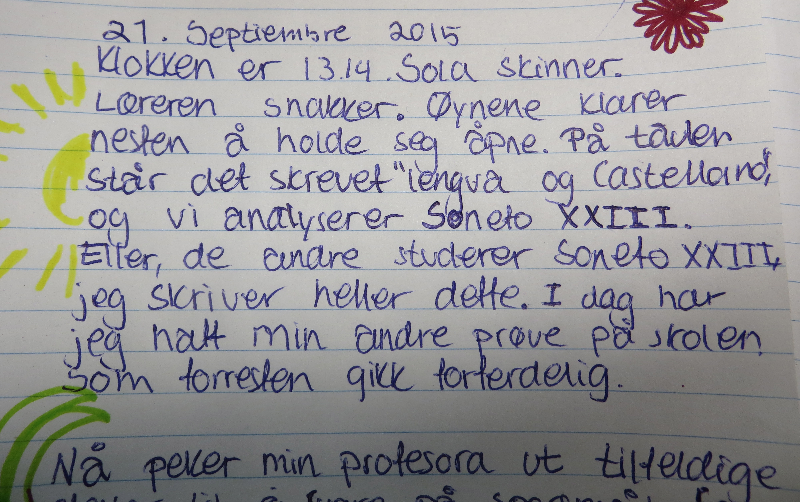 21. Septiembre 2015
Klokken er 13.14. Sola skinner.
Læreren snakker. Øynene klarer
nesten å holde seg åpne. På tavlen
står det skrevet "lengua og Castellano",
og vi analyserer Soneto XXIII.
Eller, de andre studerer Soneto XXIII,
jeg skriver heller dette. I dag har
jeg hatt min andre prøve på skolen
som forresten gikk forferdelig.
Nå peker min profesora ut tilfeldige